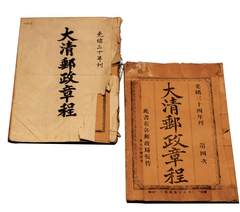 光緒三十年刊
大清郵政章程
光緒三十四年刊
第四次
大清郵政章程
此書在各郵政局販售